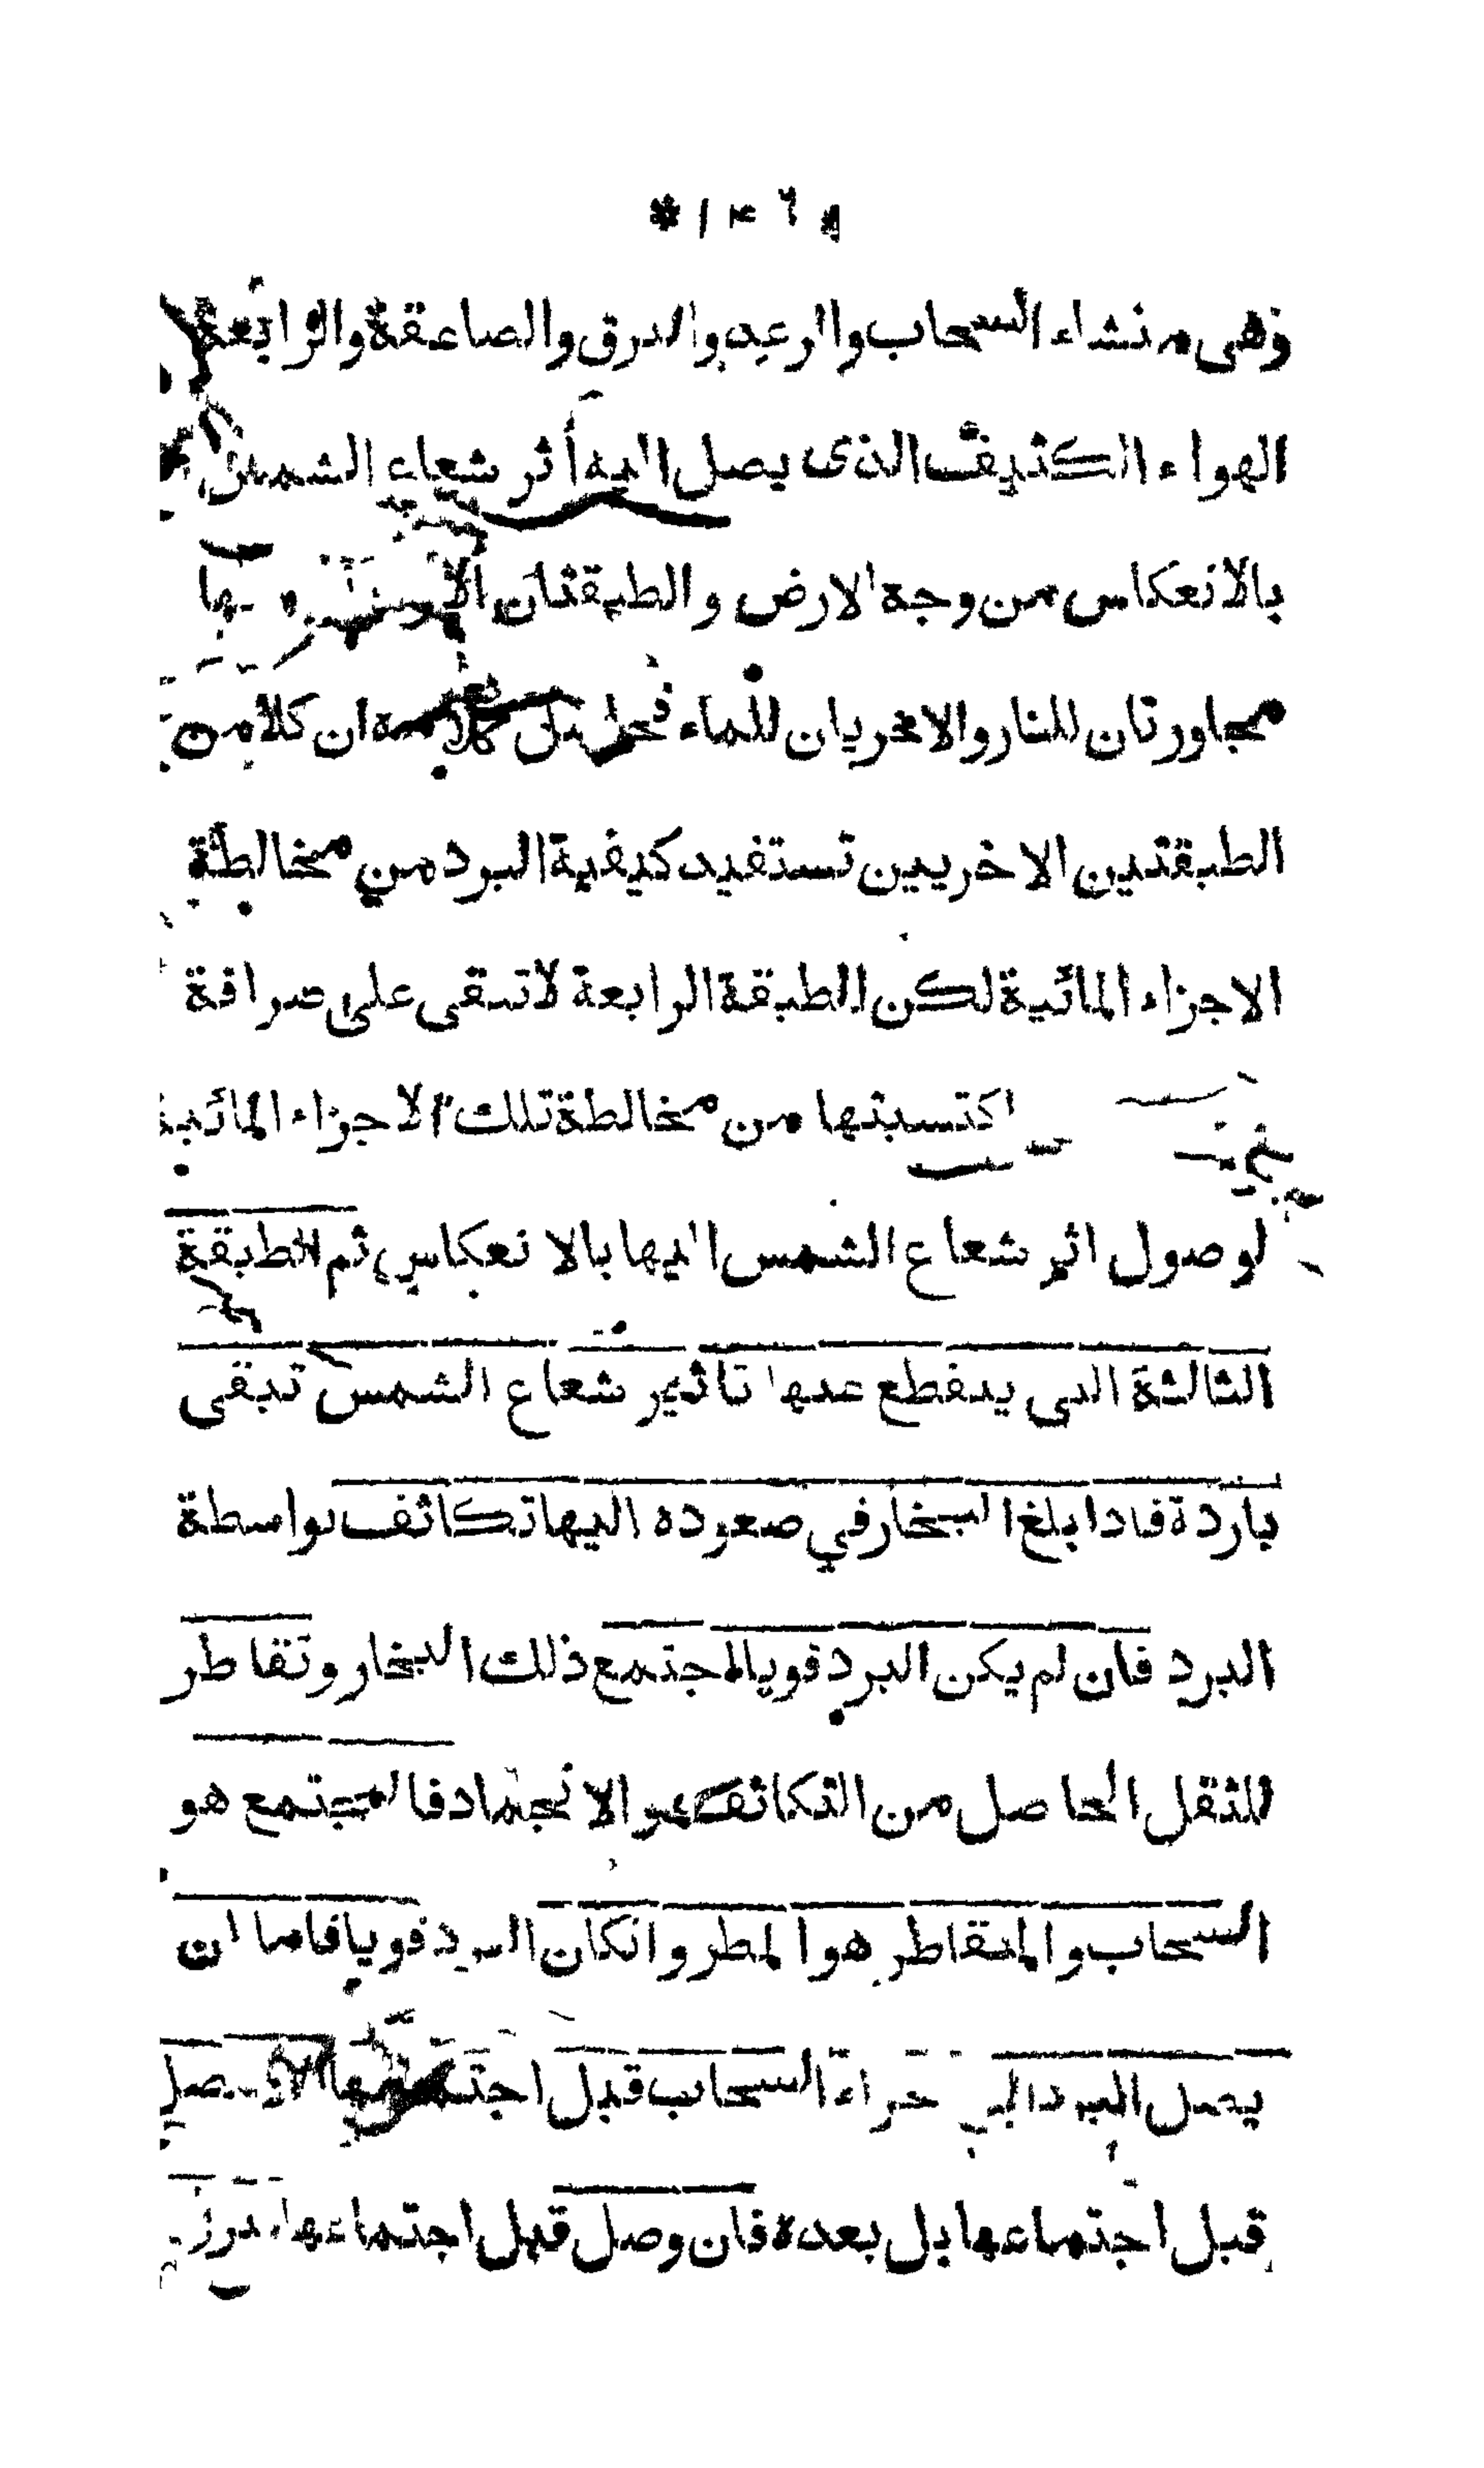 * ١٣٦ *
وهى منشاء السحاب والرعد والبرق والصاعقة والرابعة
الهواء الكثيف الذى يصل اليه أثر شعاع الشمس
بالانعكاس من وجه الارض والطبقتان
مجاورتان للنار والاخريان للماء ان كلا من
الطبقتين الاخريين تستفيد كيفية البرد من مخالطة
الاجزاء المائية لكن الطبقة الرابعة لا تبقى على صرافة
اكتسبتها من مخالطة تلك الاجزاء المائية
لوصول اثر شعاع الشمس اليها بالانعكاس ثم الطبقة
الثالثة التى ينقطع عنها تاثير شعاع الشمس تبقى
باردة فاذا بلغ البخار في صعوده اليها تكاثف بواسطة
البرد فان لم يكن البرد قويا اجتمع ذلك البخار وتقاطر
للثقل الحاصل من التكاثف والانجماد فالمجتمع هو
السحاب والمتقاطر هو المطر وانكان البرد قويا فاما ان
يصل البرد الى اجزاء السحاب قبل اجتماعها يصل
قبل اجتماعها بل بعده فان وصل قبل اجتماعها